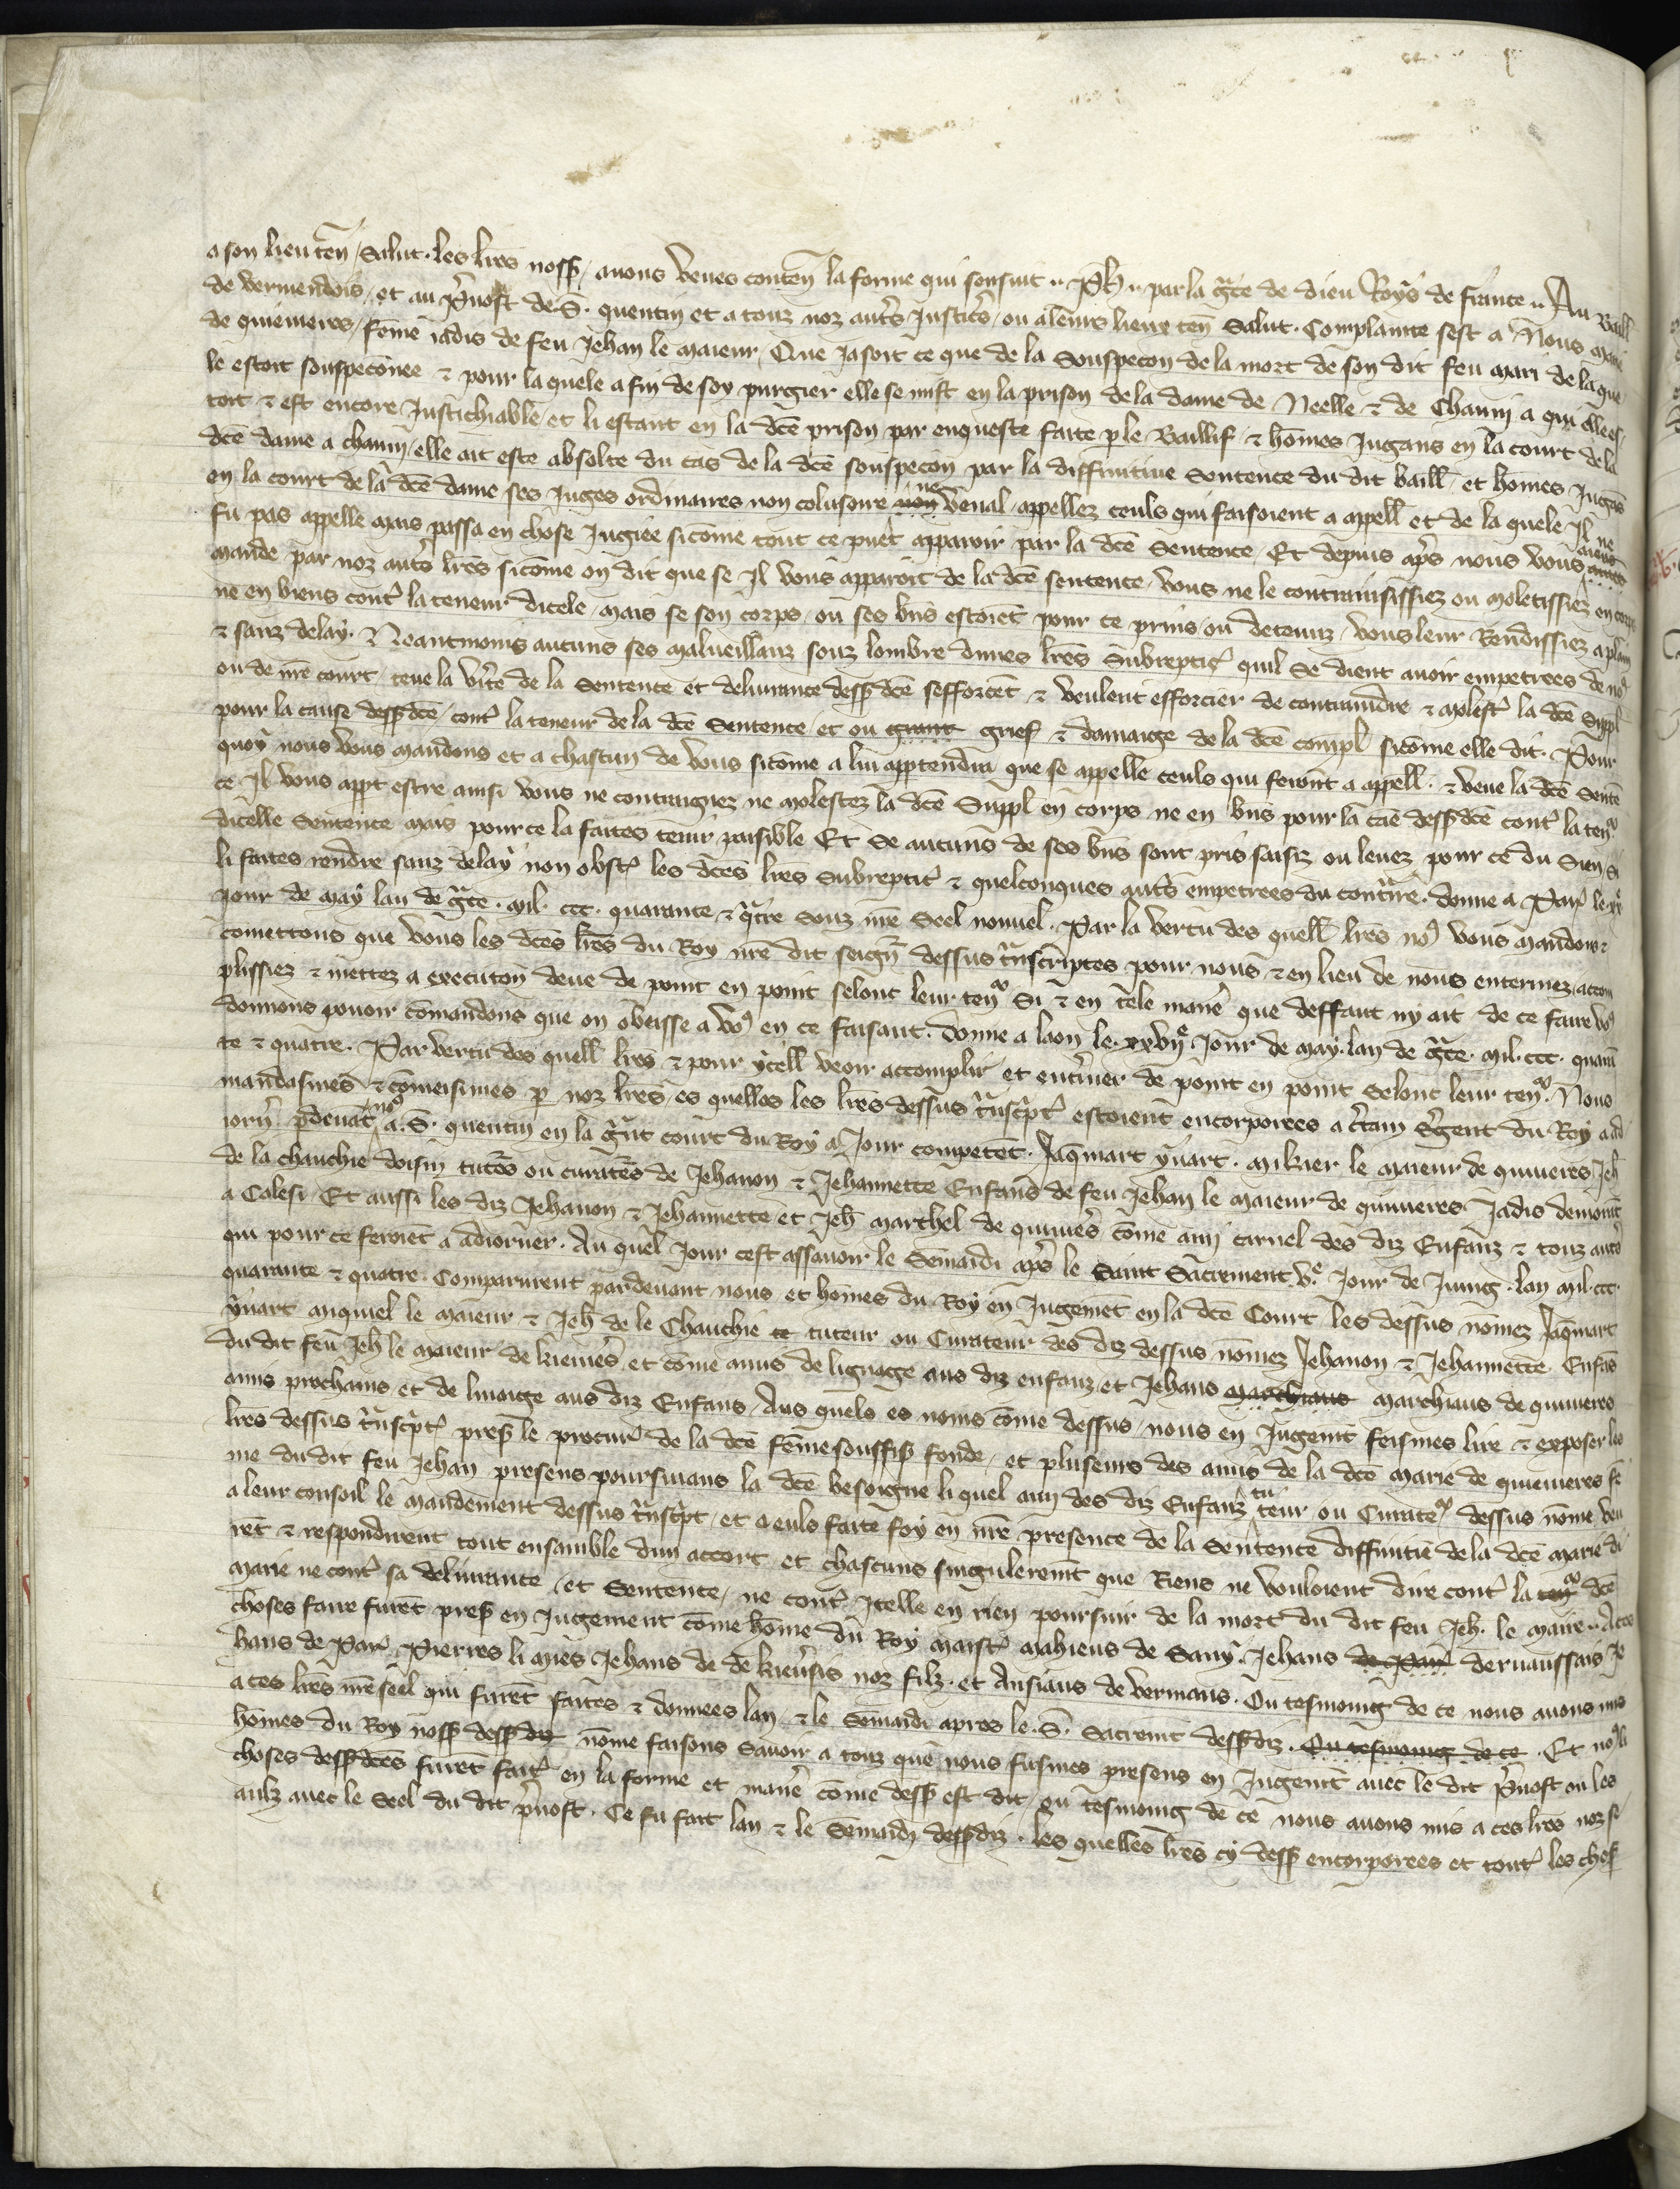 a son lieuten̄. salut. les lr̄es noss̄. auons veues conten̄ la forme qui sensuit. Ph̄. par la gr̄ce de dieu Roys de france. Au Baill̄
de vermendois, et au p̄uost de .S. quentin et a touz noz aut̄s justic̄s, ou a leurs lieux ten̄ Salut. Complainte sest a Nous Marie
de quiuieres, fem̄e jadis de feu Jehan le maieur, Que jasoit ce que de la souspecon de la mort de son dit feu mari de la que
le estoit souspeconēe & pour laquele a fin de soy purgier elle se mist en la prison de la dame de Neelle & de Chauni a qui elle es
toit & est encore Justichiable, et li estant en la dc̄e prison par enqueste faite p le Baillif & hom̄es Jugans en la court de la
dc̄e dame a chauni, elle ait este absolte du cas de la dc̄e souspecon par la diffinitiue Sentence du dit baill̄ et hom̄es Jugās
en la court de la dc̄e dame ses Juges ordinaires non colusoire non ne venal, appellez ceuls qui faisoient a appell̄ et de la quele Il ne
fu pas appelle mais passa en chose Jugiee sicom̄e tout ce puet apparoir par la dc̄e Sentence. Et depuis ap̄s nous vous auons
mande par noz aut̄s lr̄es sicom̄e on dit que se Il vous apparoit de la dc̄e sentence, vous ne le contrainsissiez ou molestissiez en corps
ne en biens cont̄ la teneur dicele, mais se son corps, ou ses bn̄s estoiēt pour ce prins ou detenuz, vous leur Rendissiez a plain
& sanz delay. Neantmoins aucuns ses malueillanz souz lombre dunes lr̄es Subreptic̄ quil se dient auoir empetrees de no9
ou de nr̄e court, teue la v̄ite de la Sentence et deliurance dess̄dc̄e sefforcēt & veulent efforcier de contraindre & molest̄ la dc̄e Suppl̄
pour la cause dess̄dc̄e, cont̄ la teneur de la dc̄e Sentence, et ou grant grief & damaige de la dc̄e compl̄ sicom̄e elle dit. Pour
quoy nous vous mandons et a chascun de vous sicom̄e a lui appartendra que se appelle ceuls qui feront a appell̄. & veue la dc̄e Sentē
ce Il vous appt estre ainsi vous ne contraignez ne molestez la dc̄e Suppl̄ en corps ne en bn̄s pour la cāe dess̄dc̄e cont̄ la ten̄
dicelle Sentence mais pour ce la faites tenir paisible Et se aucuns de ses bn̄s sont pris saisiz ou leuez pour ce du Sien Si
li faites rendre sanz delay non obst̄ les dc̄es lr̄es Subreptic̄ & quelconques aut̄s empetrees du contr̄ire. donne a Par̄ le xxe
jour de may lan de gr̄ce. mil. ccc. quarante & q̄tre Souz nr̄e Seel nouuel. Par la vertu des quell̄ lr̄es no9 vous mandons &
com̄ettons que vous les dc̄es lr̄es du Roy nr̄e dit seign̄ dessus tr̄nscriptes pour nous & en lieu de nous enterinez, accom
plissiez & mettez a execution̄ deue de point en point selonc leur ten̄ Si & en tele maniē que deffaut ny ait de ce faire vo9
donnons pouoir com̄andons que on obeisse a vo9 en ce faisant. donne a laon le. xxvije Jour de may. lan de gr̄ce. mil. ccc. quarā
te & quatre. Par vertu des quell̄ lr̄es & pour ycell̄ veoir accomplir et ent̄iner de point en point Selonc leur ten̄. Nous
mandasmes & com̄eisimes p noz lr̄es, es quelles les lr̄es dessus tr̄nscr̄pt̄ estoient encorporees a c̄tain S̄gent du Roy a ad
iorn̄ pdeuāt no9 a .S. quentin en la gr̄nt court du Roy a Jour competēt. Jaq̄mart yuart. mikiel le maieur de quiuieres Jeh̄
de la chauchie doisin tutēs ou curatēs de Jehanon & Jehannette Enfans de feu Jehan le maieur de quiuieres Jadis demourāt
a Calesi, Et aussi les diz Jehanon & Jehannette et Jeh̄ marchel de quiuiēs com̄e ami carnel des diz Enfanz & touz aut̄s
qui pour ce feroiēt a adiorner. Au quel Jour cest assauoir le Semaidi ap̄s le Saint Sacrement ve Jour de Juing. lan mil. ccc.
quarante & quatre Comparurent pardeuant nous et hom̄es du Roy en Jugemēt en la dc̄e Court les dessus nom̄ez Jaq̄mart
yuart miquiel le maieur & Jeh̄ de le Chauchie te tuteur ou Curateur des diz dessus nom̄ez Jehanon & Jehannette Enfās
du dit feu Jeh̄ le maieur de kieuiēs et com̄e amis de lignage aus diz enfanz, et Jehans marchians marchiaus de quiuieres
amis prochains et de linaige aus diz Enfans, Aus quels es noms com̄e dessus, nous en Jugemt feismes lire & exposer les
lr̄es dessus tr̄nscr̄pt̄ pres̄ le procur̄ de la dc̄e fem̄e souffis̄ fonde, et pluseurs des amis de la dc̄e marie de quiuieres fē
me du dit feu Jehan presens poursuians la dc̄e besoigne li quel ami des diz Enfanz tu teur ou Curate dessus nom̄e veu
a leur conseil le mandement dessus tr̄nscr̄pt, et a euls faite foy en nr̄e presence de la Sentence diffinitiē de la dc̄e marie di
rēt & respondirent tout ensamble dun accort et chascuns singulieremt que Riens ne vouloient dire cont̄ la ten̄ dc̄e
marie ne cont̄ sa deliurance, et Sentence, ne cont̄ Icelle en rien poursuir de la mort du dit feu Jeh̄. le maire. A ces
choses faire furēt pres̄ en Jugement com̄e hom̄e du Roy maist̄ mahieus de Sauy. Jehans de Par̄ deruaussais Je
hans de Par̄. Pierres li mies Jehans de de kieursis noz filz. et Ansiaus de vermans. Ou tesmoing de ce nous auons mis
a ces lr̄es nr̄e seel qui furēt faites & donnees lan & le Semaidi apres le .S. Sacremt dess̄diz. Ou tesmoing de ce. Et no9 li
hom̄es du Roy noss̄ dess̄diz nom̄e faisons sauoir a touz que nous fusmes presens en Jugemt auec le dit p̄uost ou les
choses dess̄dc̄es furēt fait̄ en la forme et maniē com̄e dess̄ est dit, ou tesmoing de ce nous auons mis a ces lr̄es noz se
aulz auec le Seel du dit p̄uost. Ce fu fait lan & le Semaidi dess̄diz. les quelles lr̄es cy dess̄ encorporees et tout̄ les chos̄